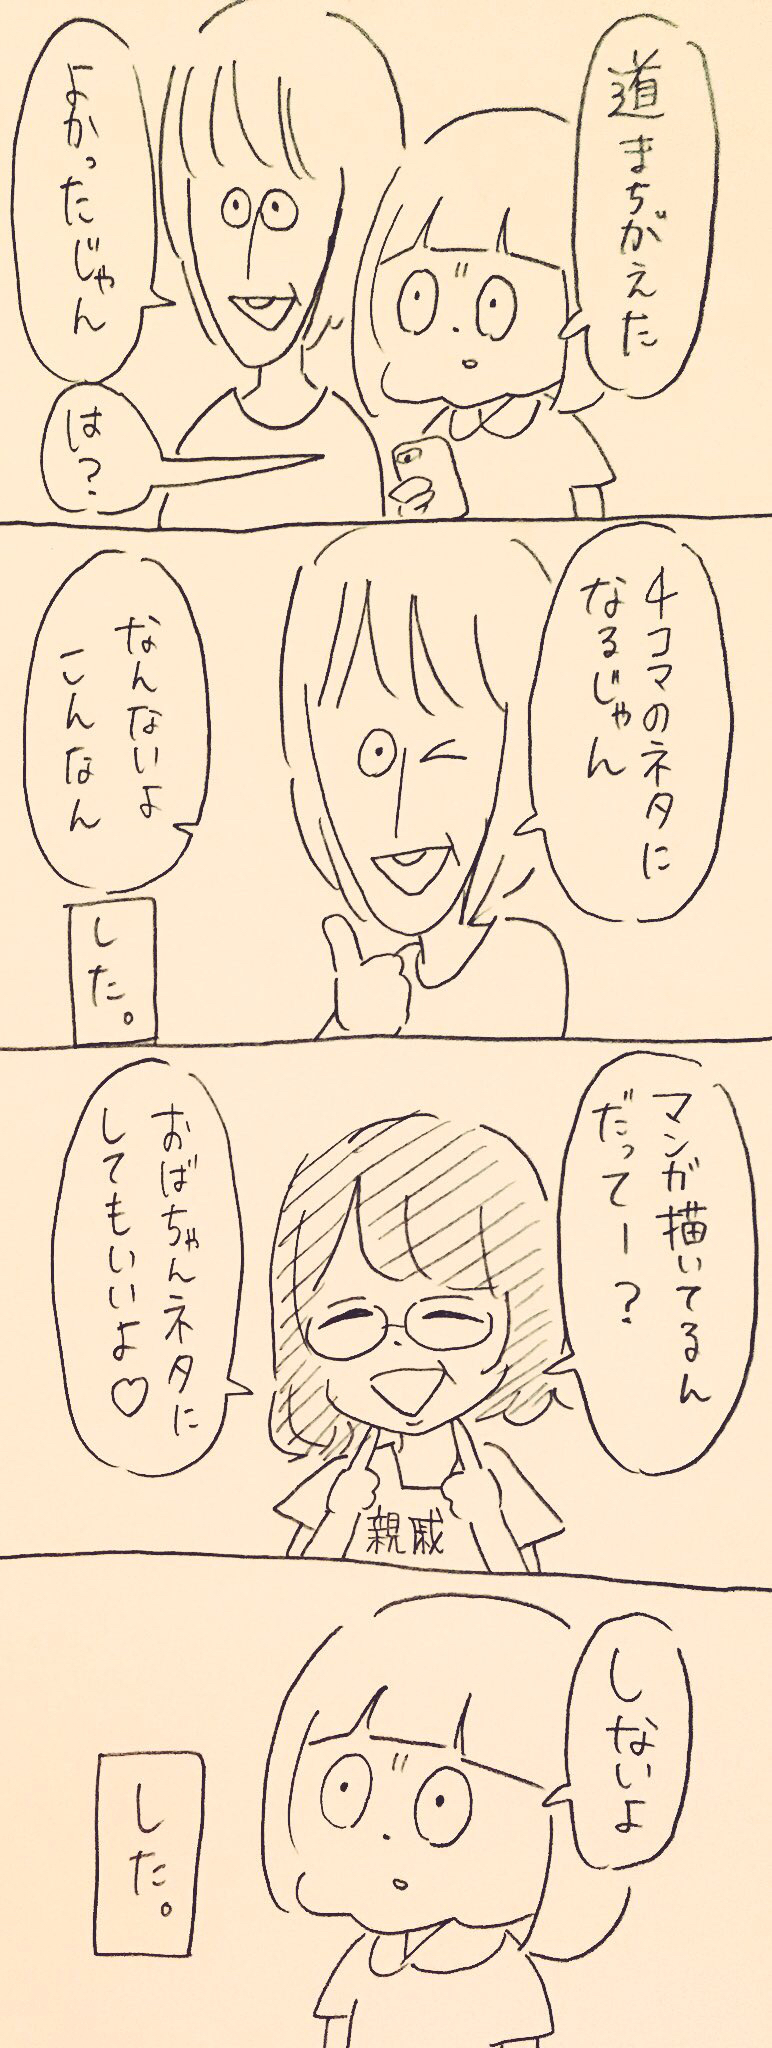 道まちがえた
よかったじゃん
は?
4コマのネタに
なるじゃん
なんないよ
こんなん
した。
マンガ描いてるん
だってー?
おばちゃんネタに
してもいいよ♡
親戚
しないよ
した。